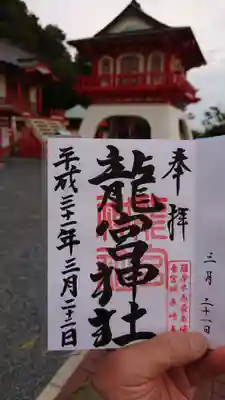 奉拝
龍宮神社
平成三十一年三月二十一日
三月二十一日